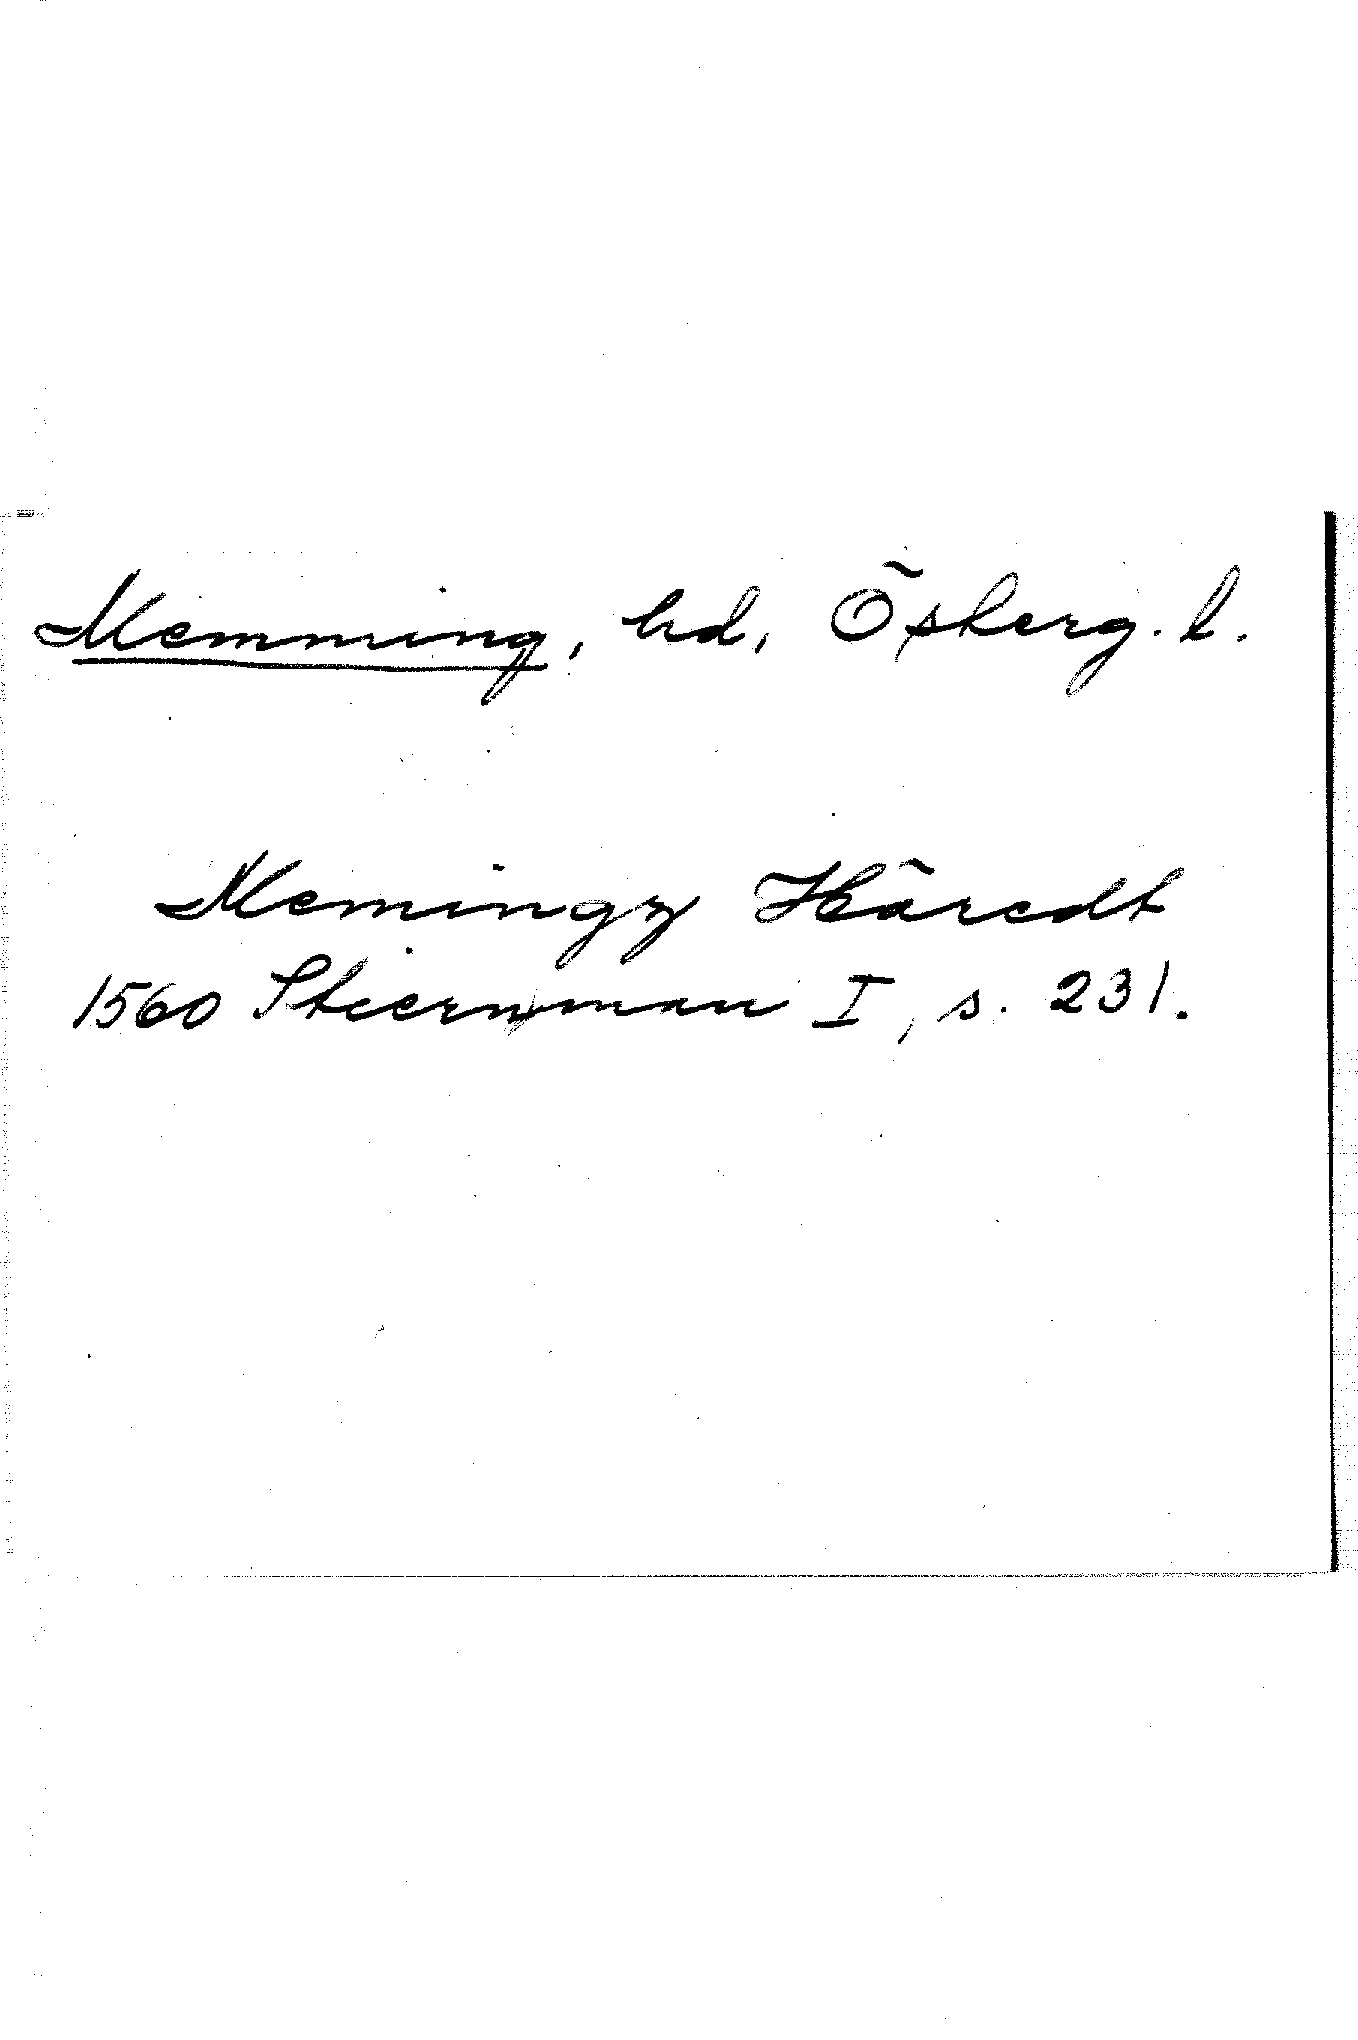 Memming, hd, Österg. l.
Memingz Häredt
1560 Stiernman I, s. 231.